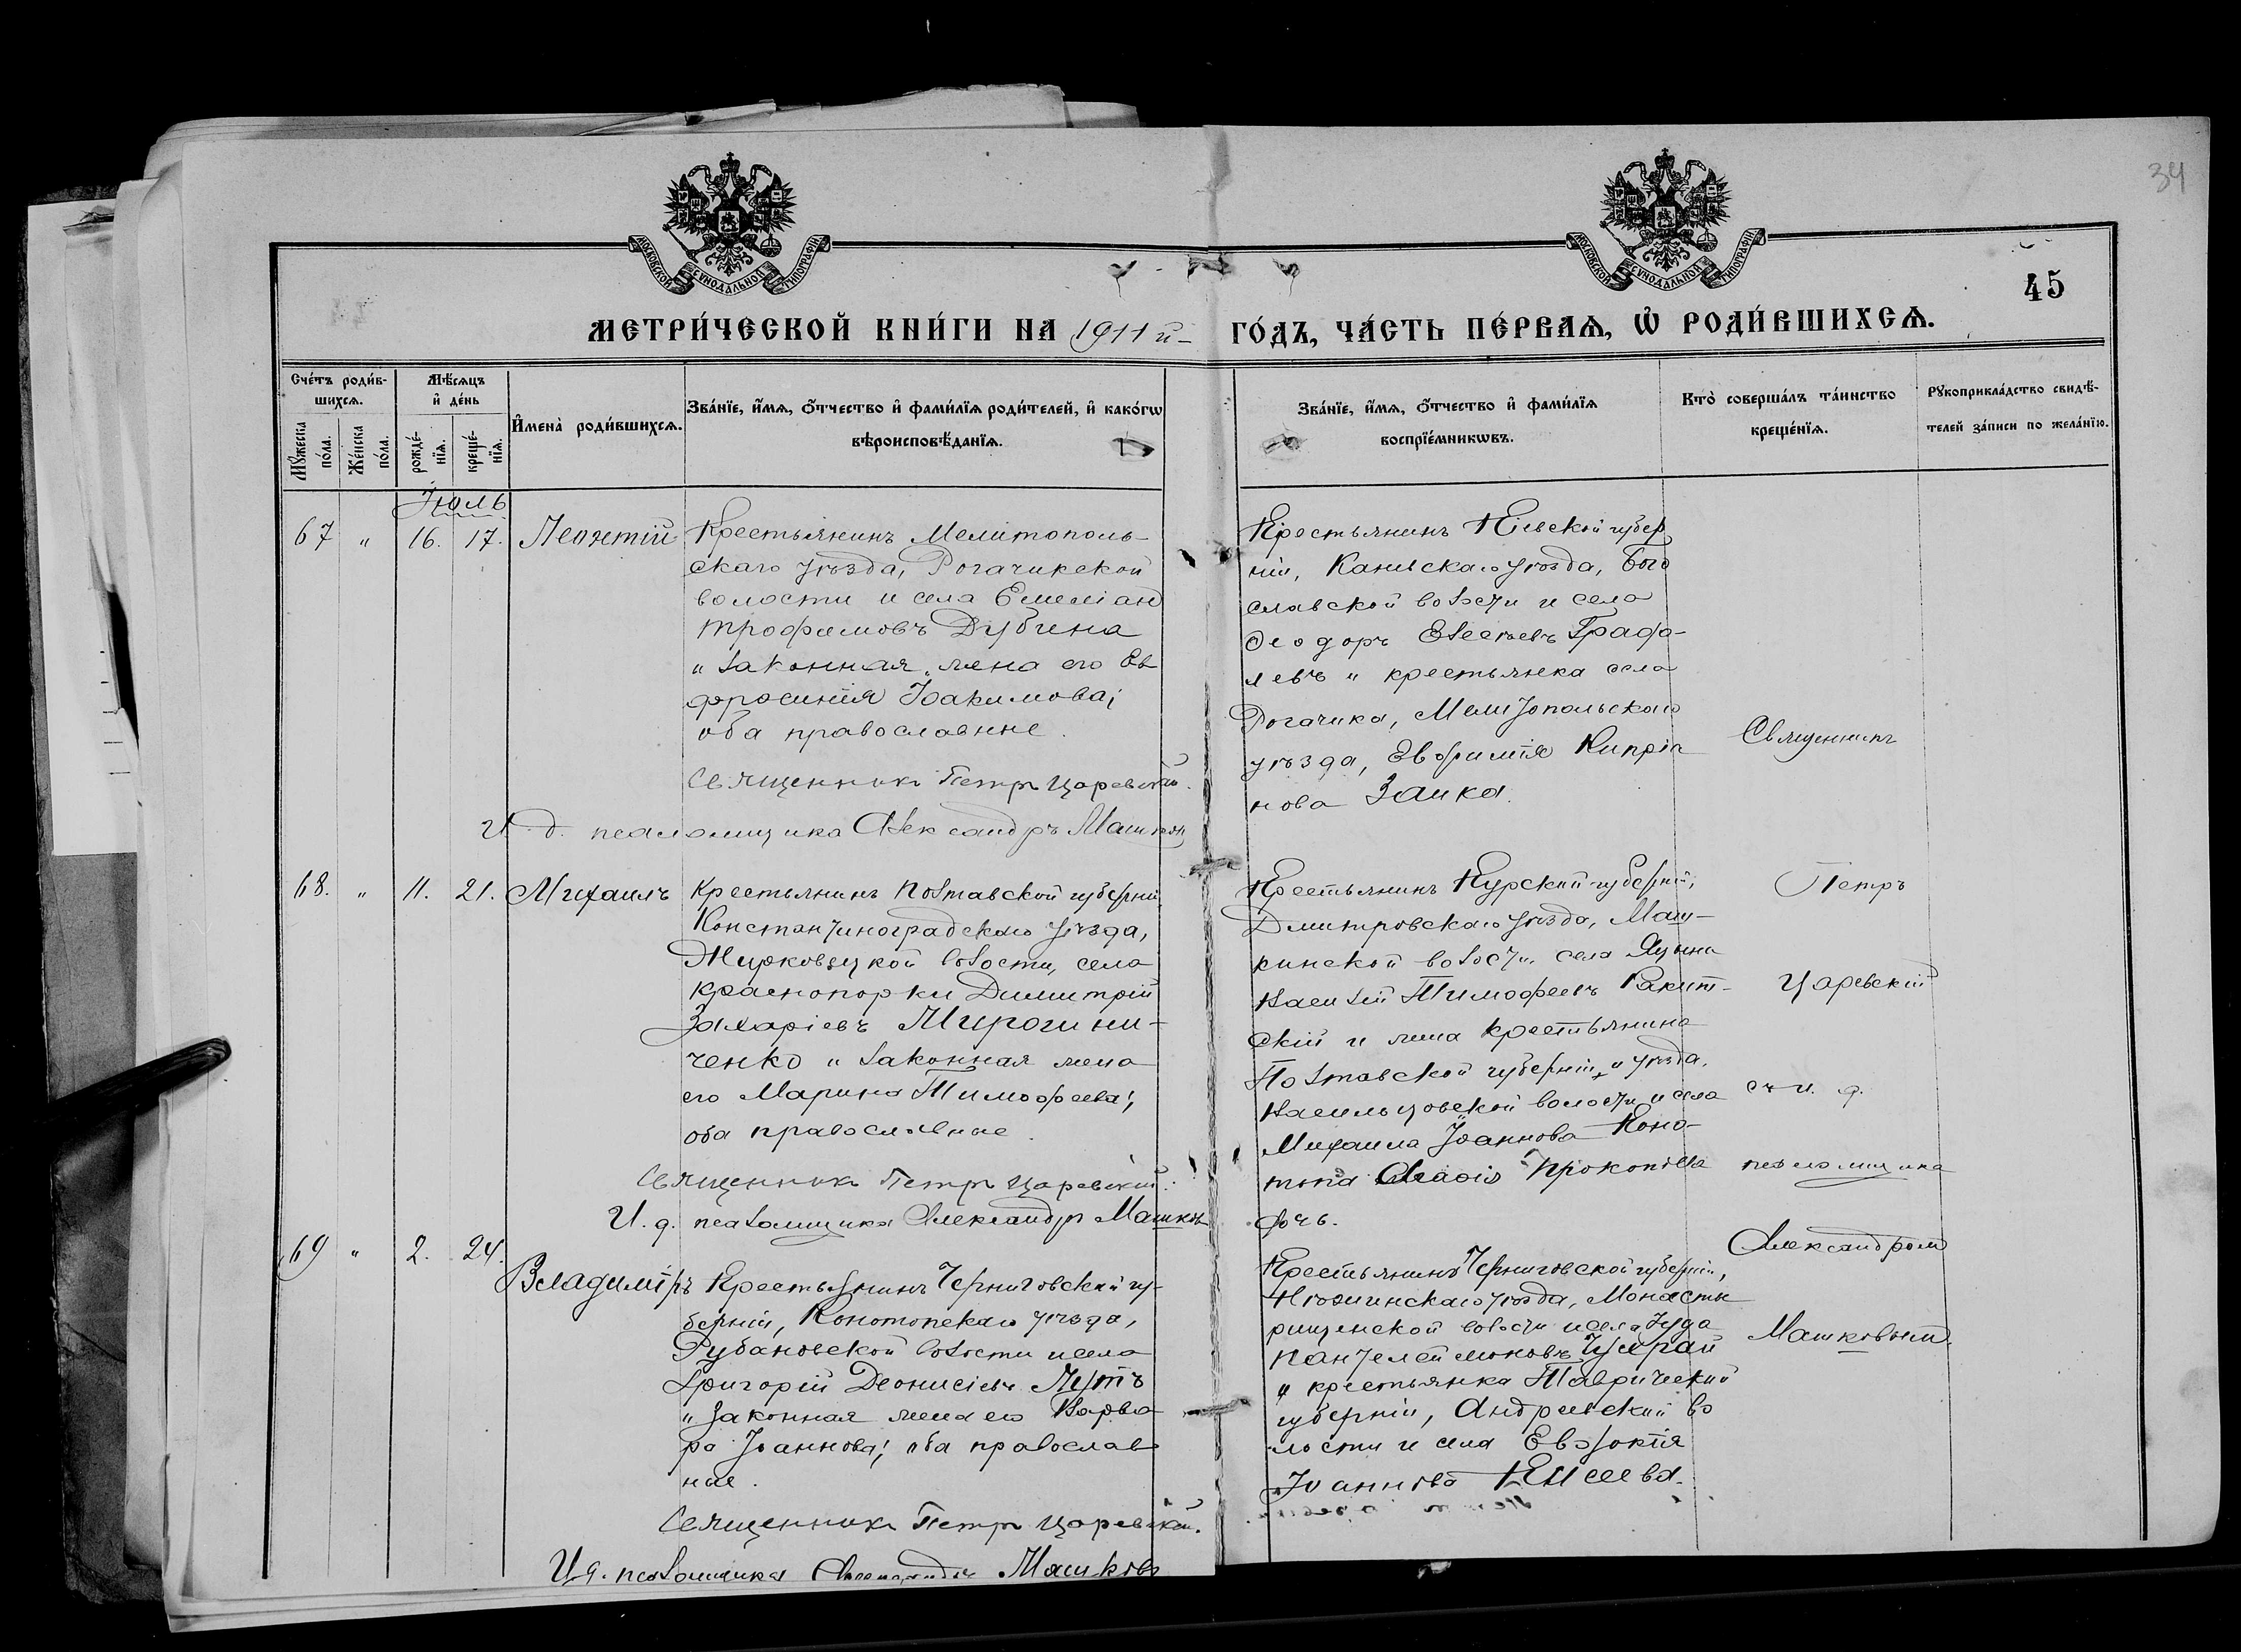 34
МОСКОВСКОЙ СУНОДАЛЬНОЙ ТИПОГРАФІИ
МОСКОВСКОЙ СУНОДАЛЬНОЙ ТИПОГРАФІИ
45
МЕТРИ́ЧЕСКОЙ КНИ́ГИ НА 1911 й
ГО́ДЪ, ЧА́СТЬ ПЕ́РВАѦ, Ѡ҆ РОДИ́ВШИХСѦ.
Сче́тъ роди́в-
шихсѧ.
Мꙋ́жеска по́ла.
Же́нска по́ла.
Мѣ́сѧцъ
и҆ де́нь
рожде́-
нїѧ.
креще́-
нїѧ.
И҆мена̀ роди́вшихсѧ.
Зва́нїе, и҆́мѧ, ѻ҆́тчество и҆ фами́лїѧ роди́телей, и҆ како́гѡ
вѣроисповѣ́данїѧ.
Зва́нїе, и҆́мѧ, ѻ҆́тчество и҆ фами́лїѧ
воспрїе́мникѡвъ.
Кто̀ соверша́лъ та́инство
креще́нїѧ.
Рꙋкоприкла́дство свидѣ́-
телей за́писи по жела́нїю.
Іюль
67 " 16. 17. Леонтій
Крестьянинъ Мелитополь-
скаго уѣзда, Рогачикской
волости и села Емеліан
Трофимовъ Дубина
и законная жена его Ев
фросинія Іоакимова;
оба православные.
Священник Петръ Царевскій.
И. д. псаломщика Александръ Машков
Крестьянинъ Кіевской губер
ніи, Каневскаго уѣзда, Бого
славской волости и села
Ѳеодоръ Елесѣевъ Графо-
левъ и крестьянка села
Рогачика, Мелитопольскаго
уѣзда, Евфимія Кипріа
нова Заика.
68. " 11. 21. Михаилъ
Крестьянинъ Полтавской губерніи,
Константиноградскаго уѣзда,
волости, села
Димитрій
Захаріевъ
ченко и законная жена
его Марина Тимофеева;
оба православные.
Священник Петръ Царевскій.
И. д. псаломщика Александръ Машковъ
Крестьянинъ Курской губерніи,
Дмитровскаго уѣзда, Маш-
кинской волости, села
Василій Тимофеевъ Ракит-
скій и жена крестьянина
Полтавской губерніи и уѣзда,
Васильцовской волости и села
Михаила Іоаннова Коно-
Прокопіева
дочь.
69 " 2. 24.
Владиміръ
Крестьянинъ Черниговской гу-
берніи, Конотопскаго уѣзда,
Рубановской волости и села
Григорій Деонисіевъ
и законная жена его Варва
ра Іоаннова; оба православ
ные.
Священник Петръ Царевскій.
И. д. псаломщика Александръ Машковъ
Крестьянинъ Черниговской губерніи,
Нѣжинскаго уѣзда, Монасты
рищенской волости и села Іуда
Пантелеймоновъ
и крестьянка Таврической
губерніи, Андреевской во
лости и села Евдокія
Іоаннова Елисеева.
Священникъ
Петръ
Царевскій
съ и. д.
псаломщика
Александромъ
Машковымъ.